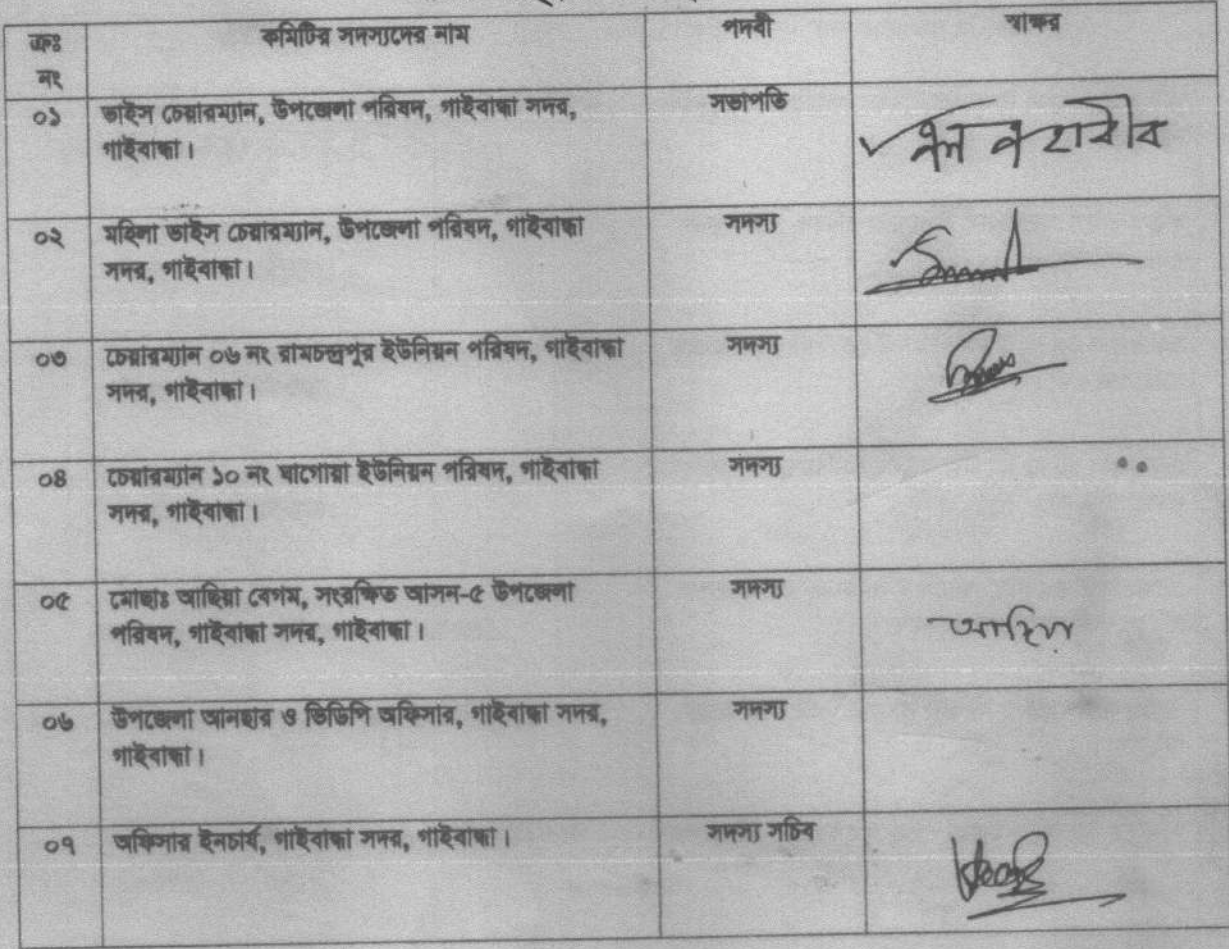 ক্রঃ নং কমিটির সদস্যদের নাম পদবী স্বাক্ষর
০১ ভাইস চেয়ারম্যান, উপজেলা পরিষদ, গাইবান্ধা সদর, সভাপতি
গাইবান্ধা।
০২ মহিলা ভাইস চেয়ারম্যান, উপজেলা পরিষদ, গাইবান্ধা সদস্য
সদর, গাইবান্ধা।
০৩ চেয়ারম্যান ০৬ নং রামচন্দ্রপুর ইউনিয়ন পরিষদ, গাইবান্ধা সদস্য
সদর, গাইবান্ধা।
০৪ চেয়ারম্যান ১০ নং ঘাগোয়া ইউনিয়ন পরিষদ, গাইবান্ধা সদস্য
সদর, গাইবান্ধা।
০৫ মোছাঃ আছিয়া বেগম, সংরক্ষিত আসন-৫ উপজেলা সদস্য
পরিষদ, গাইবান্ধা সদর, গাইবান্ধা।
আছিয়া
০৬ উপজেলা আনছার ও ভিডিপি অফিসার, গাইবান্ধা সদর, সদস্য
গাইবান্ধা।
০৭ অফিসার ইনচার্য, গাইবান্ধা সদর, গাইবান্ধা। সদস্য সচিব